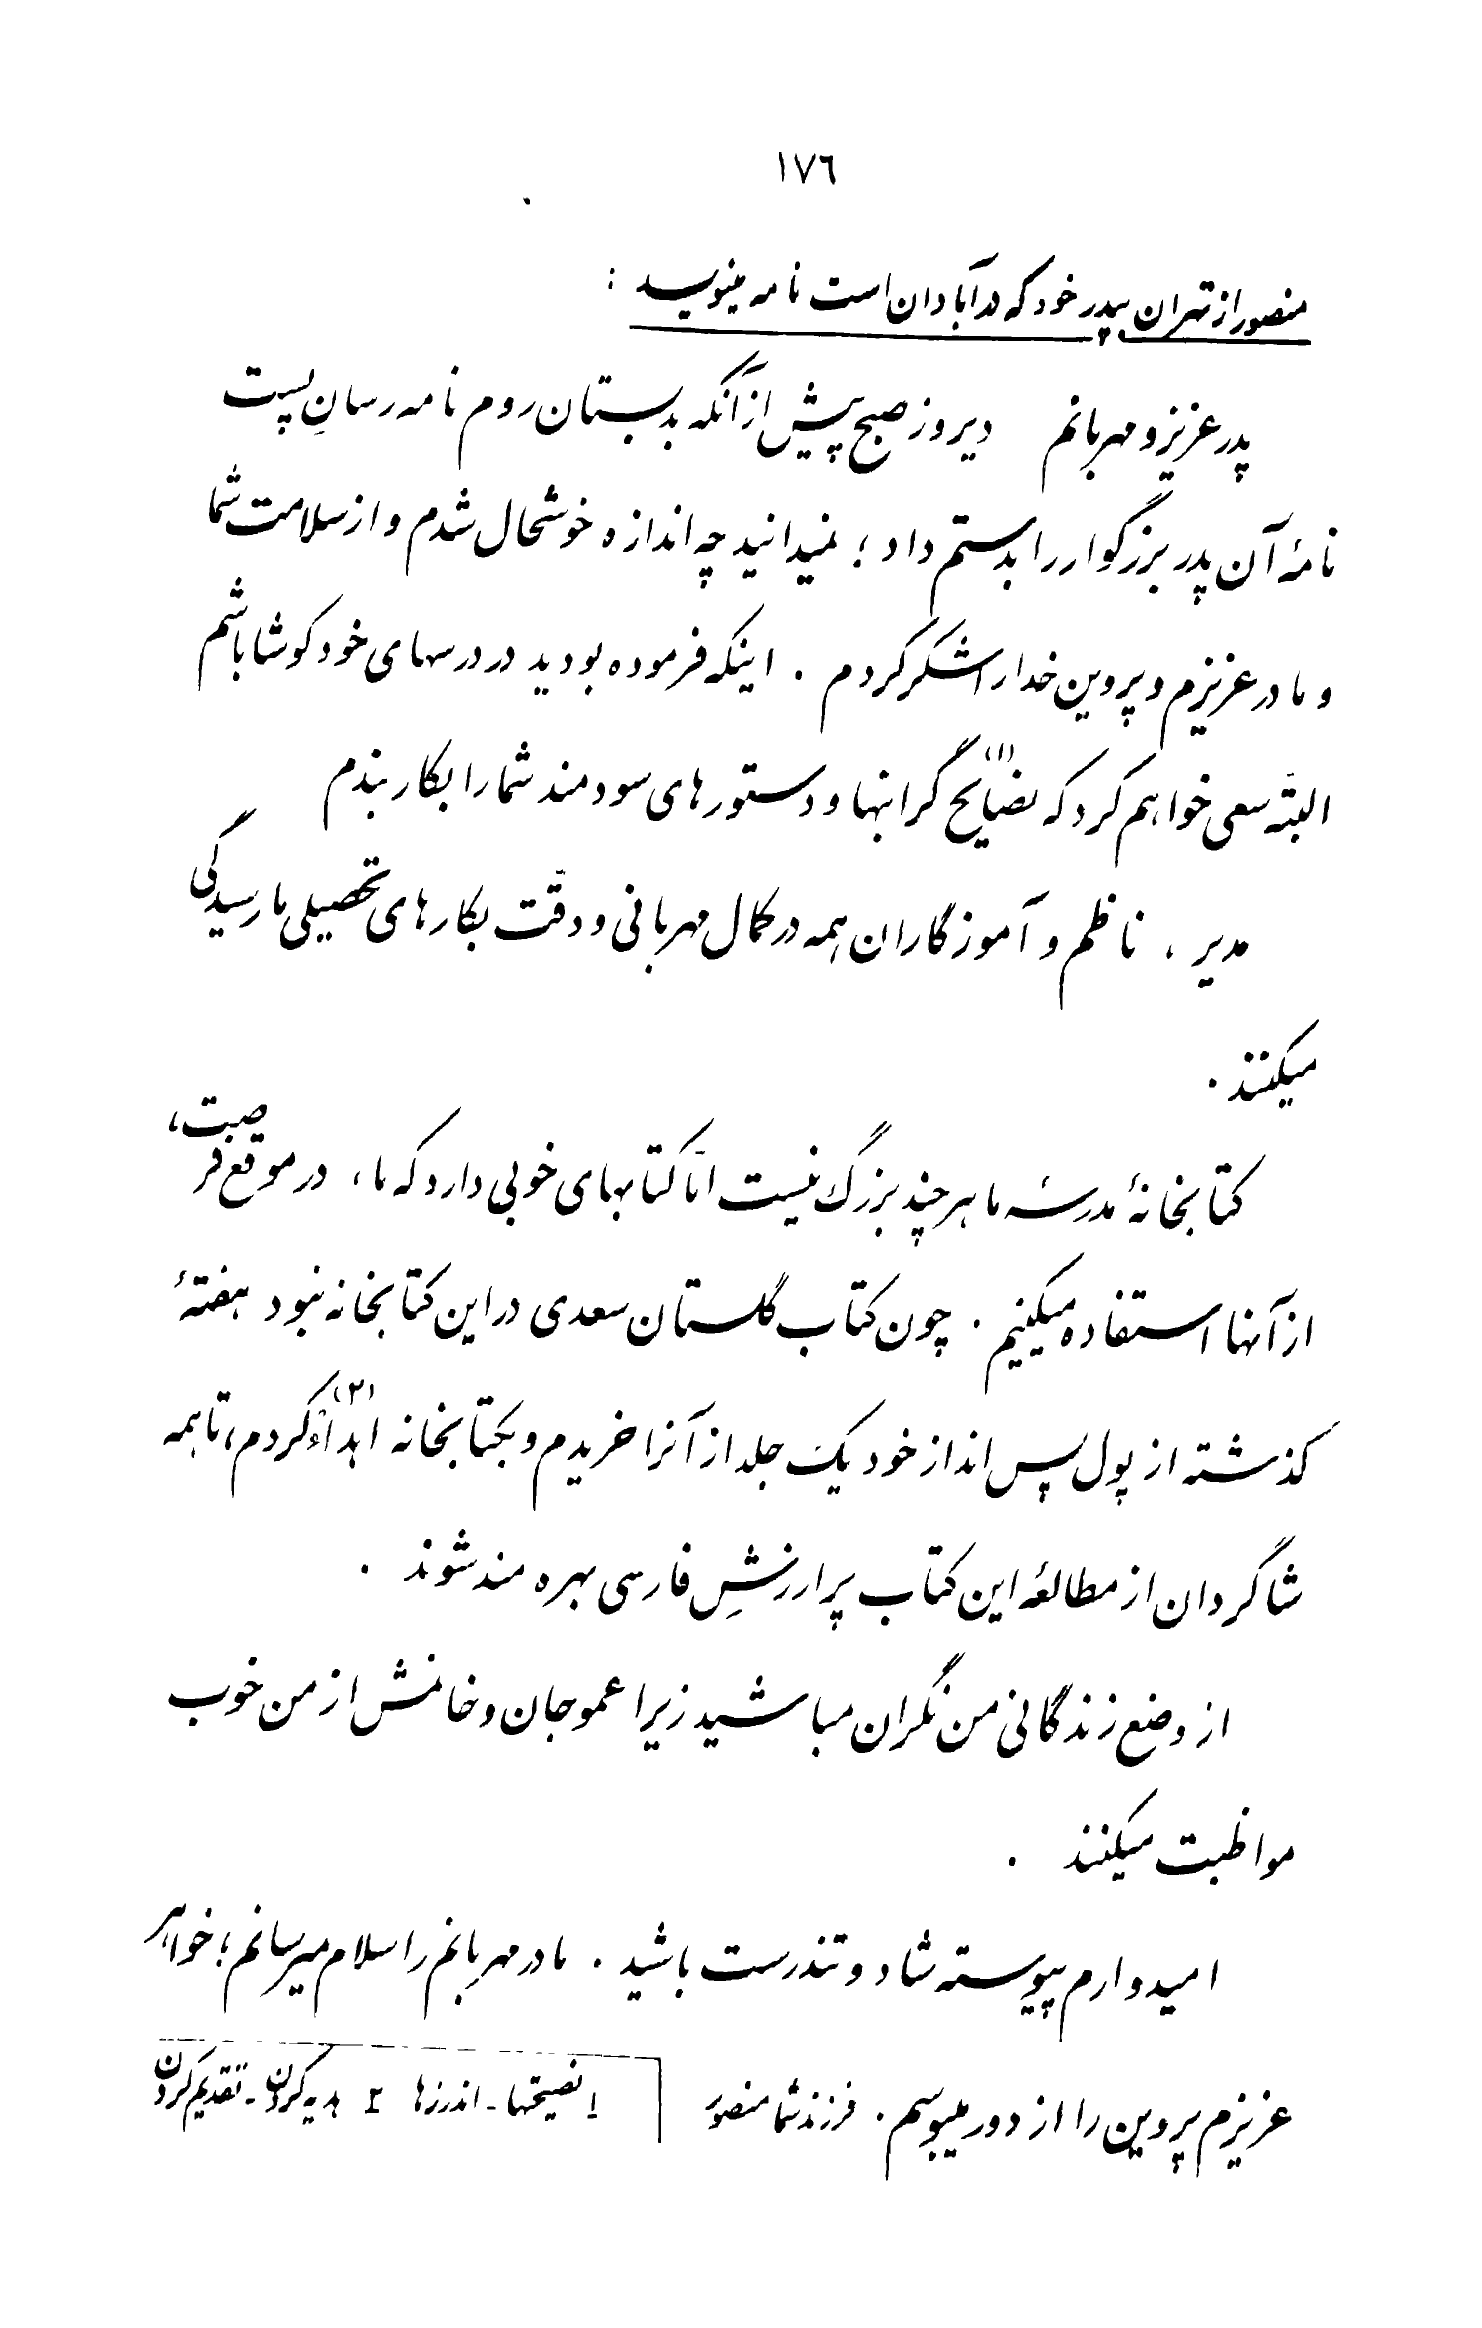 ١٧٦
منصور از تهران بپدر خود که در آبادان است نامه مینویسد :
پدر عزیز و مهربانم دیروز صبح پیش از آنکه بدبستان روم نامه رسانِ پست
نامهٔ آن پدر بزرگوار را بدستم داد ؛ نمیدانید چه اندازه خوشحال شدم و از سلامت شما
و مادر عزیزم و پروین خدا را شکر کردم . اینکه فرموده بودید در درسهای خود کوشا باشم
البتّه سعی خواهم کرد که نصایح (١) گرانبها و دستورهای سودمند شما را بکار بندم
مدیر ، ناظم و آموزگاران همه در کمال مهربانی و دقّت بکارهای تحصیلی ما رسیدگی
میکنند .
کتابخانهٔ مدرسه ما هر چند بزرگ نیست امّا کتابهای خوبی دارد که ما ، در موقع فرصت ،
از آنها استفاده میکنیم . چون کتاب گلستان سعدی در این کتابخانه نبود هفتهٔ
گذشته از پول پس انداز خود یک جلد از آنرا خریدم و بکتابخانه اهداء (٢) کردم ، تا همه
شاگردان از مطالعهٔ این کتاب پر ارزشِ فارسی بهره مند شوند .
از وضع زندگانی من نگران مباشید زیرا عموجان و خانمش از من خوب
مواظبت میکنند .
امیدوارم پیوسته شاد و تندرست باشید . مادر مهربانم را سلام میرسانم ؛ خواهر
عزیزم پروین را از دور میبوسم . فرزند شما منصور
١ نصیحتها - اندرزها ٢ هدیه کردن - تقدیم کردن